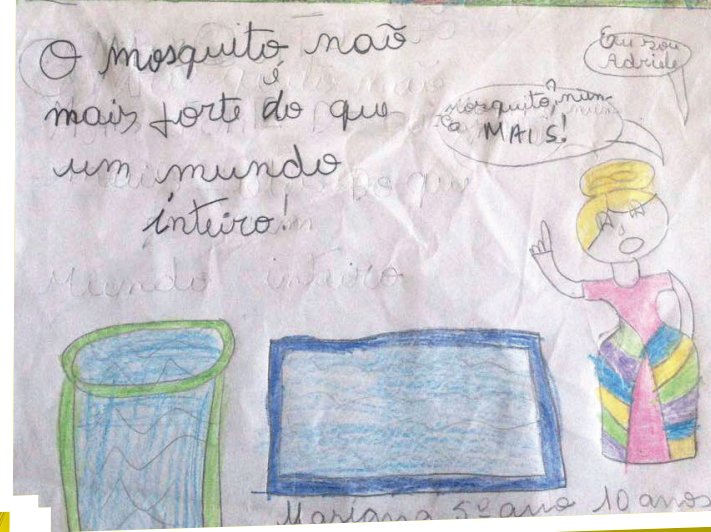 O mosquito naõ
é
mais forte do que
um mundo
inteiro!
Eu sou
Adriele
Mosquito, nun-
ca MAIS!
Mundo inteiro
Mariana 5º ano 10 anos